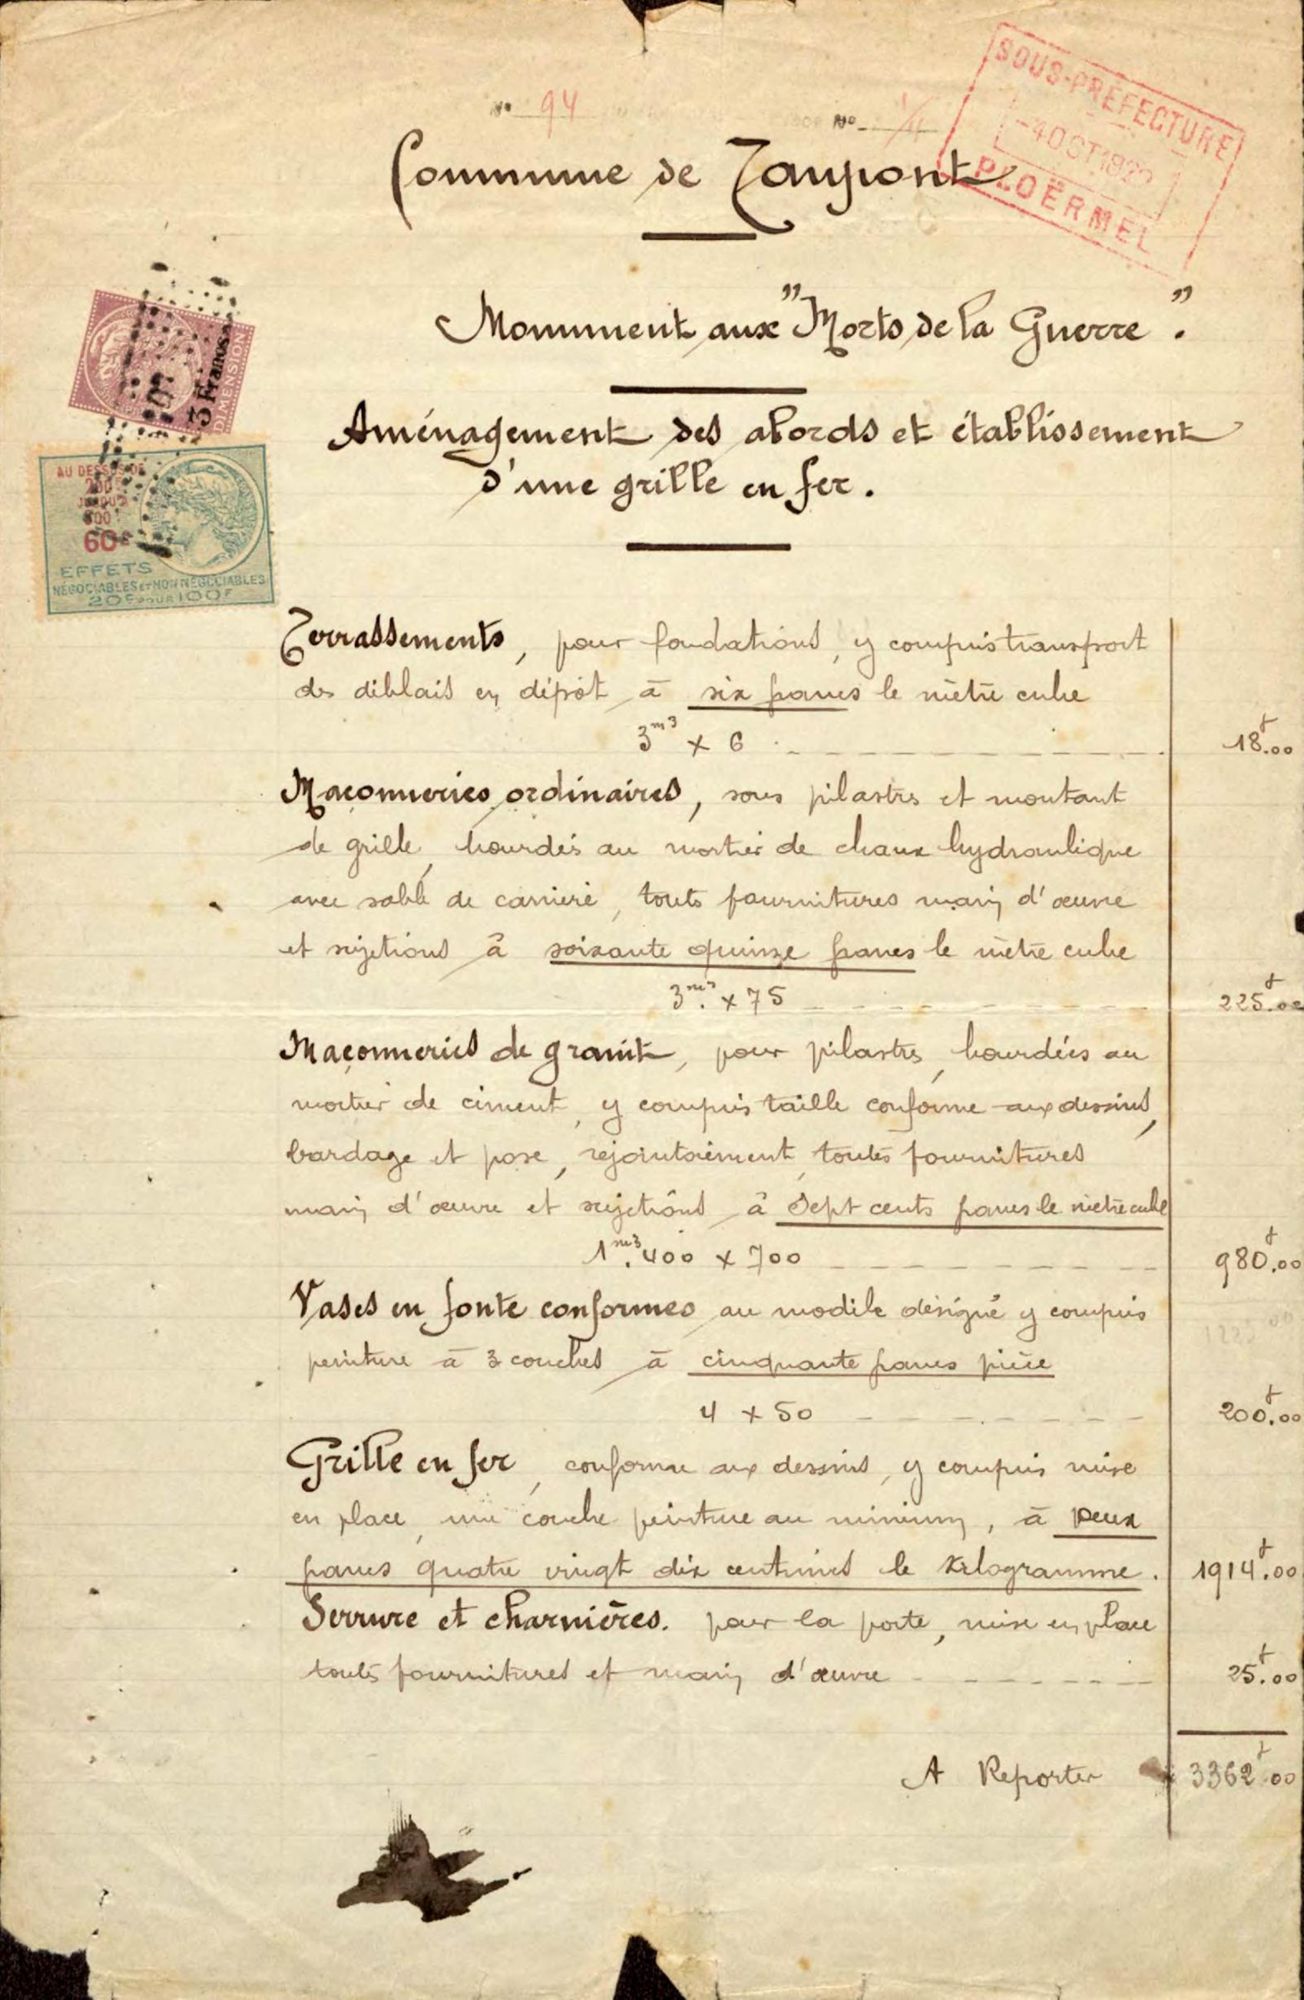 N° 94
N°
SOUS-PRÉFECTURE
-4 OCT 192
PLOËRMEL
Commune de Taupont
Monument aux "Morts de la Guerre".
Aménagement des abords et établissement
d'une grille en fer.
3 Francs
DIMENSION
AU DESSUS DE
200F
JUSQU'A
300F
60c
EFFETS
NÉGOCIABLES ET NON NÉGOCIABLES
20c POUR 100F
Terrassements, pour fondations, y compris transport
des déblais en dépôt à six francs le mètre cube
3m3 x 6 18f.00
Maçonneries ordinaires, sous pilastres et montant
de grille, hourdés au mortier de chaux hydraulique
avec sable de carrière, toutes fournitures main d'œuvre
et sujétions à soixante quinze francs le mètre cube
3m3 x 75 225f.00
Maçonneries de granit, pour pilastres, hourdées au
mortier de ciment, y compris taille conforme aux dessins,
bardage et pose, rejointoiement, toutes fournitures
main d'œuvre et sujétions à sept cents francs le mètre cube
1m3.400 x 700 980f.00
Vases en fonte conformes au modèle désigné y compris
peinture à 3 couches à cinquante francs pièce
4 x 50 200f.00
Grille en fer, conforme aux dessins, y compris mise
en place, une couche peinture au minium, à Deux
francs quatre vingt dix centimes le kilogramme. 1914f.00
Serrure et charnières. pour la porte, mise en place
toutes fournitures et main d'œuvre 25f.00
A Reporter 3362f.00